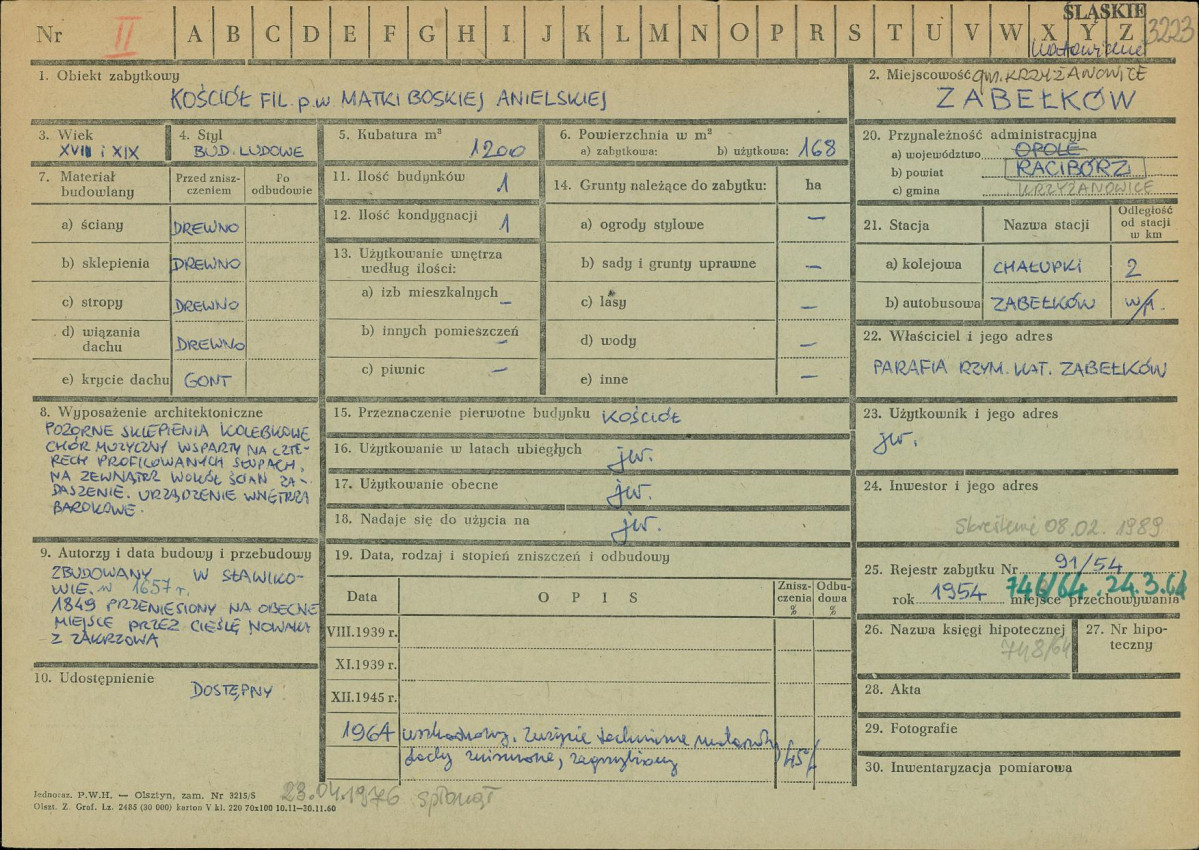 Nr II A B C D E F G H I J K L M N O P R S T U V W X Y Z
ŚLĄSKIE 3223
Katowickie
1. Obiekt zabytkowy
KOŚCIÓŁ FIL. p.w MATKI BOSKIEJ ANIELSKIEJ
2. Miejscowość gm. KRZYŻANOWICE
ZABEŁKÓW
3. Wiek
XVIII i XIX
4. Styl
BUD. LUDOWE
5. Kubatura m³
1200
6. Powierzchnia w m²
a) zabytkowa: b) użytkowa: 168
7. Materiał budowlany
Przed zniszczeniem
Po odbudowie
a) ściany DREWNO
b) sklepienia DREWNO
c) stropy DREWNO
d) wiązania dachu DREWNO
e) krycie dachu GONT
8. Wyposażenie architektoniczne
POZORNE SKLEPIENIA KOLEBKOWE
CHÓR MUZYCZNY WSPARTY NA CZTE-
RECH PROFILOWANYCH SŁUPACH.
NA ZEWNĄTRZ WOKÓŁ ŚCIAN ZA-
DASZENIE. URZĄDZENIE WNĘTRZA
BAROKOWE.
9. Autorzy i data budowy i przebudowy
ZBUDOWANY W SŁAWIKO-
WIE. w 1657 r.
1849 PRZENIESIONY NA OBECNE
MIEJSCE PRZEZ CIEŚLĘ NOWAKA
Z ZAKRZOWA
10. Udostępnienie
DOSTĘPNY
11. Ilość budynków 1
12. Ilość kondygnacji 1
13. Użytkowanie wnętrza
według ilości:
a) izb mieszkalnych —
b) innych pomieszczeń —
c) piwnic —
14. Grunty należące do zabytku: ha
a) ogrody stylowe —
b) sady i grunty uprawne —
c) lasy —
d) wody —
e) inne —
15. Przeznaczenie pierwotne budynku KOŚCIÓŁ
16. Użytkowanie w latach ubiegłych jw.
17. Użytkowanie obecne jw.
18. Nadaje się do użycia na jw.
19. Data, rodzaj i stopień zniszczeń i odbudowy
Data
OPIS
Zniszczenia %
Odbudowa %
VIII.1939 r.
XI.1939 r.
XII.1945 r.
1964 uszkodzony. Zużycie techniczne materiału
dachy zniszczone, zagrzybiony 45%
20. Przynależność administracyjna
a) województwo OPOLE
b) powiat RACIBÓRZ
c) gmina KRZYŻANOWICE
21. Stacja
Nazwa stacji
Odległość
od stacji
w km
a) kolejowa CHAŁUPKI 2
b) autobusowa ZABEŁKÓW w/m.
22. Właściciel i jego adres
PARAFIA RZYM. KAT. ZABEŁKÓW
23. Użytkownik i jego adres
jw.
24. Inwestor i jego adres
Skreślenie 08.02. 1989
25. Rejestr zabytku Nr 91/54
746/64 . 24.3.64
rok 1954 miejsce przechowywania
26. Nazwa księgi hipotecznej
748/64
27. Nr hipo-
teczny
28. Akta
29. Fotografie
30. Inwentaryzacja pomiarowa
Jednoraz. P.W.H. — Olsztyn, zam. Nr 3215/S
Olszt. Z. Graf. Lz. 2488 (30 000) karton V kl. 220 70x100 10.11—30.11.60
23.04.1976 spłonął